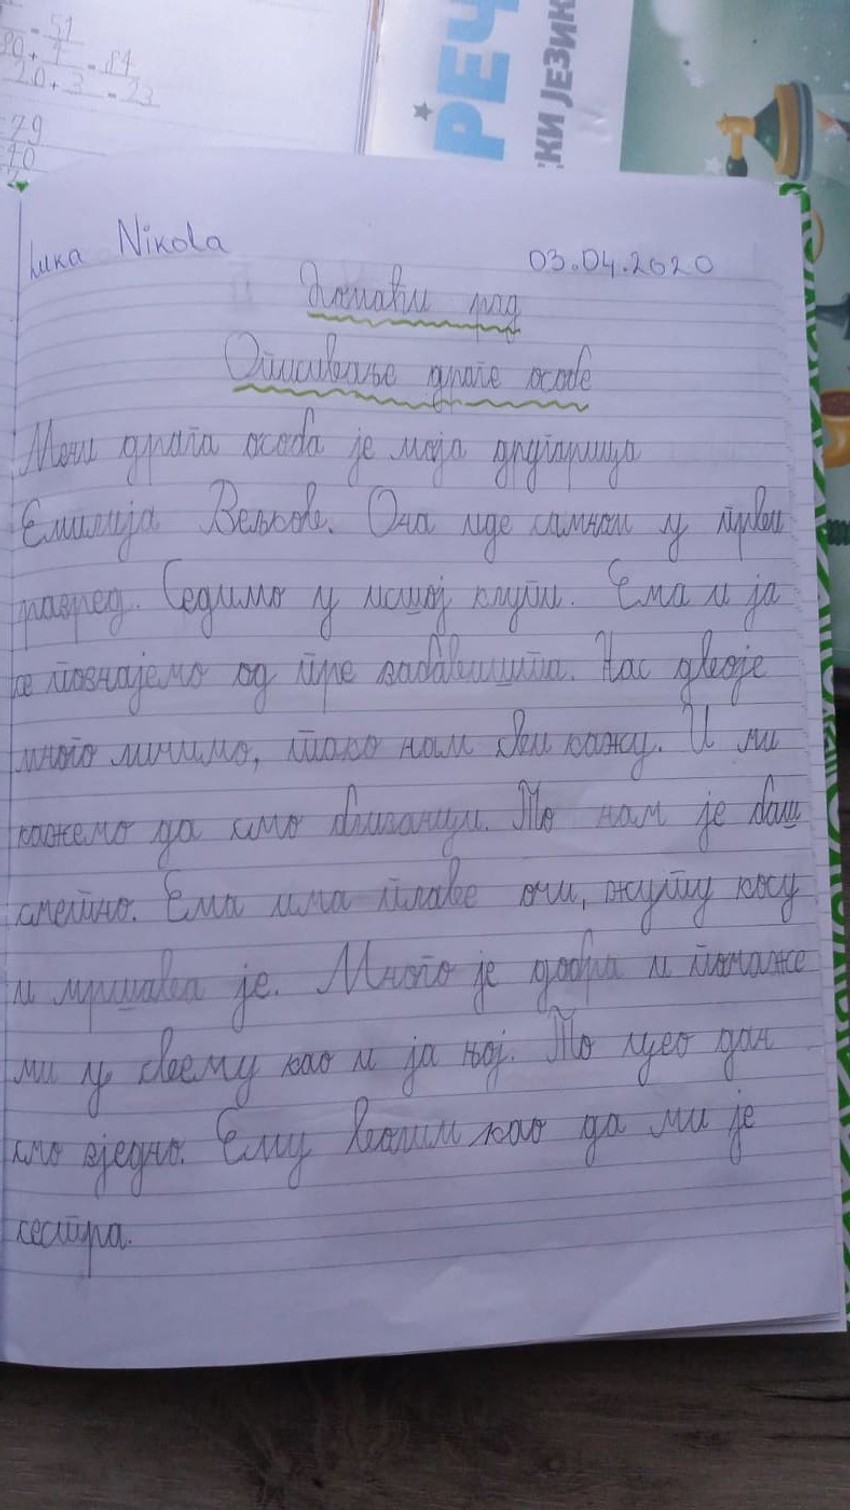 = 51
80 + 4 = 84
20 + 3 = 23
79
10
РЕЧ
КИ ЈЕЗИК
Nikola 03.04.2020
Домаћи рад
Описивање драге особе
Мени драга особа је моја другарица
Емилија Вељков. Она иде самном у први
разред. Седимо у истој клупи. Ема и ја
се познајемо од пре забавишта. Нас двоје
много личимо, тако нам сви кажу. И ми
кажемо да смо близанци. То нам је баш
смешно. Ема има плаве очи, жуту косу
и мршава је. Много је добра и помаже
ми у свему као и ја њој. По цео дан
смо зједно. Ему волим као да ми је
сестра.